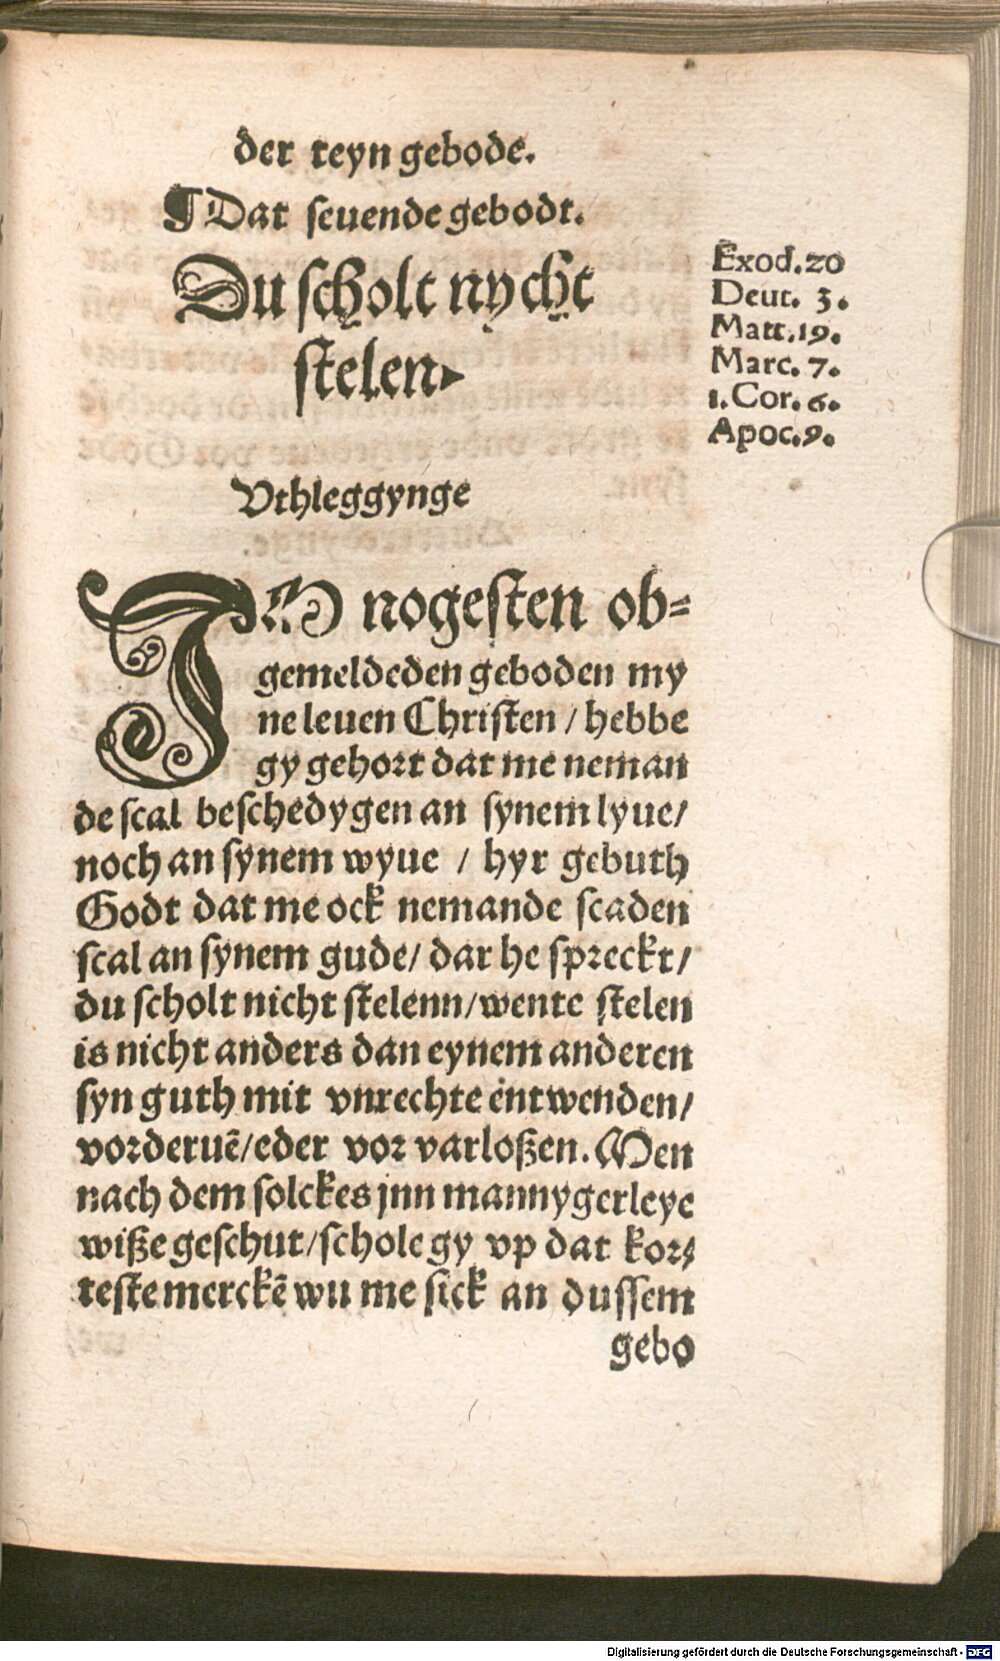 der teyn gebode.
¶ Dat seuende gebodt.
Du scholt nycht
stelen.
Exod.20
Deut. 5.
Matt.19.
Marc. 7.
1.Cor. 6.
Apoc.9.
Vthleggynge
IM nogesten ob=
gemeldeden geboden my
ne leuen Christen / hebbe
gy gehort dat me neman
de scal beschedygen an synem lyue/
noch an synem wyue / hyr gebuth
Godt dat me ock nemande scaden
scal an synem gude/ dar he spreckt/
du scholt nicht stelenn/wente stelen
is nicht anders dan eynem anderen
syn guth mit vnrechte entwenden/
vorderuē/eder vor varloßen. Men
nach dem solckes jnn mannygerleye
wiße geschut/schole gy vp dat kor=
teste merckē wu me sick an dussem
gebo
Digitalisierung gefördert durch die Deutsche Forschungsgemeinschaft - DFG